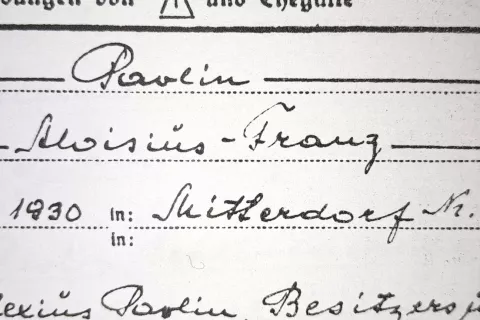 und Ehegatte
Pavlin
Aloisius - Franz
1930 in: Mitterdorf Nr.
in:
Pavlin, Besitzers